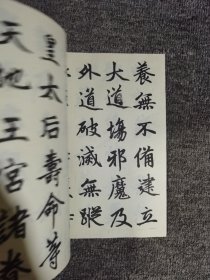 養無不備建立
大道場邪魔及
外道破滅無蹤
皇太后壽命等
天地王宮諸眷